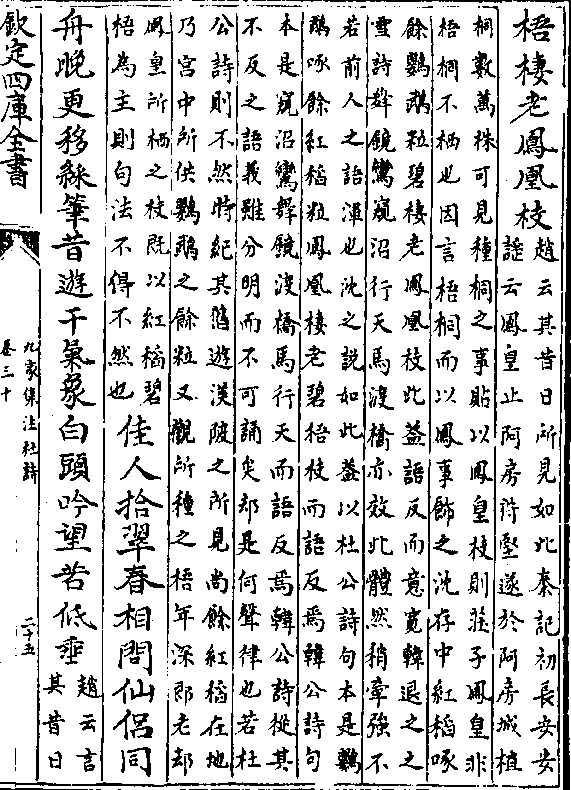 梧棲老鳳凰枝
趙云其昔日所見如此秦記初長安安
謡云鳳皇止阿房苻堅遂於阿房城植
桐數萬株可見種桐之事貼以鳳皇枝則莊子鳳皇非
梧桐不栖也因言梧桐而以鳳事飾之沈存中紅稻啄
餘鸚鵡粒碧棲老鳳凰枝此蓋語反而意寛韓退之之
雪詩舞鏡鸞窺沼行天馬渡橋亦效此體然稍牽強不
若前人之語渾也沈之說如此蓋以杜公詩句本是鸚
鵡啄餘紅稻粒鳳凰棲老碧梧枝而語反焉韓公詩句
本是窺沼鸞舞鏡渡橋馬行天而語反焉韓公詩從其
不反之語義雖分明而不可誦矣却是何聲律也若杜
公詩則不然特紀其舊遊渼陂之所見尚餘紅稻在地
乃宫中所供鸚鵡之餘粒又觀所種之梧年深即老却
鳳皇所栖之枝既以紅稻碧
梧為主則句法不得不然也
佳人拾翠春相問仙侣同
舟晚更移綵筆昔遊干氣象白頭吟望苦低垂
趙云言
其昔日
欽定四庫全書
九家集注杜詩
卷三十
二十五